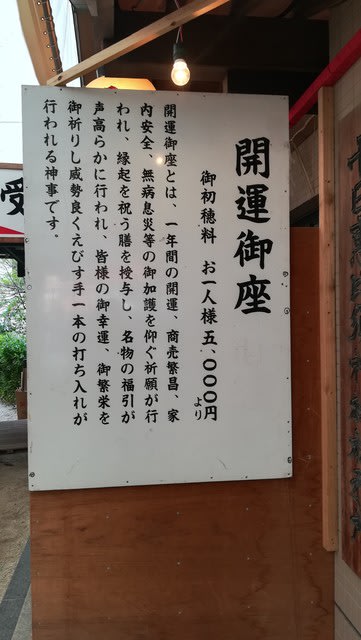 開運御座
御初穂料　お一人様五、〇〇〇円
より
開運御座とは、一年間の開運、商売繁昌、家
内安全、無病息災等の御加護を仰ぐ祈願が行
われ、縁起を祝う膳を授与し、名物の福引が
声高らかに行われ、皆様の御幸運、御繁栄を
御祈りし威勢良くえびす手一本の打ち入れが
行われる神事です。
受